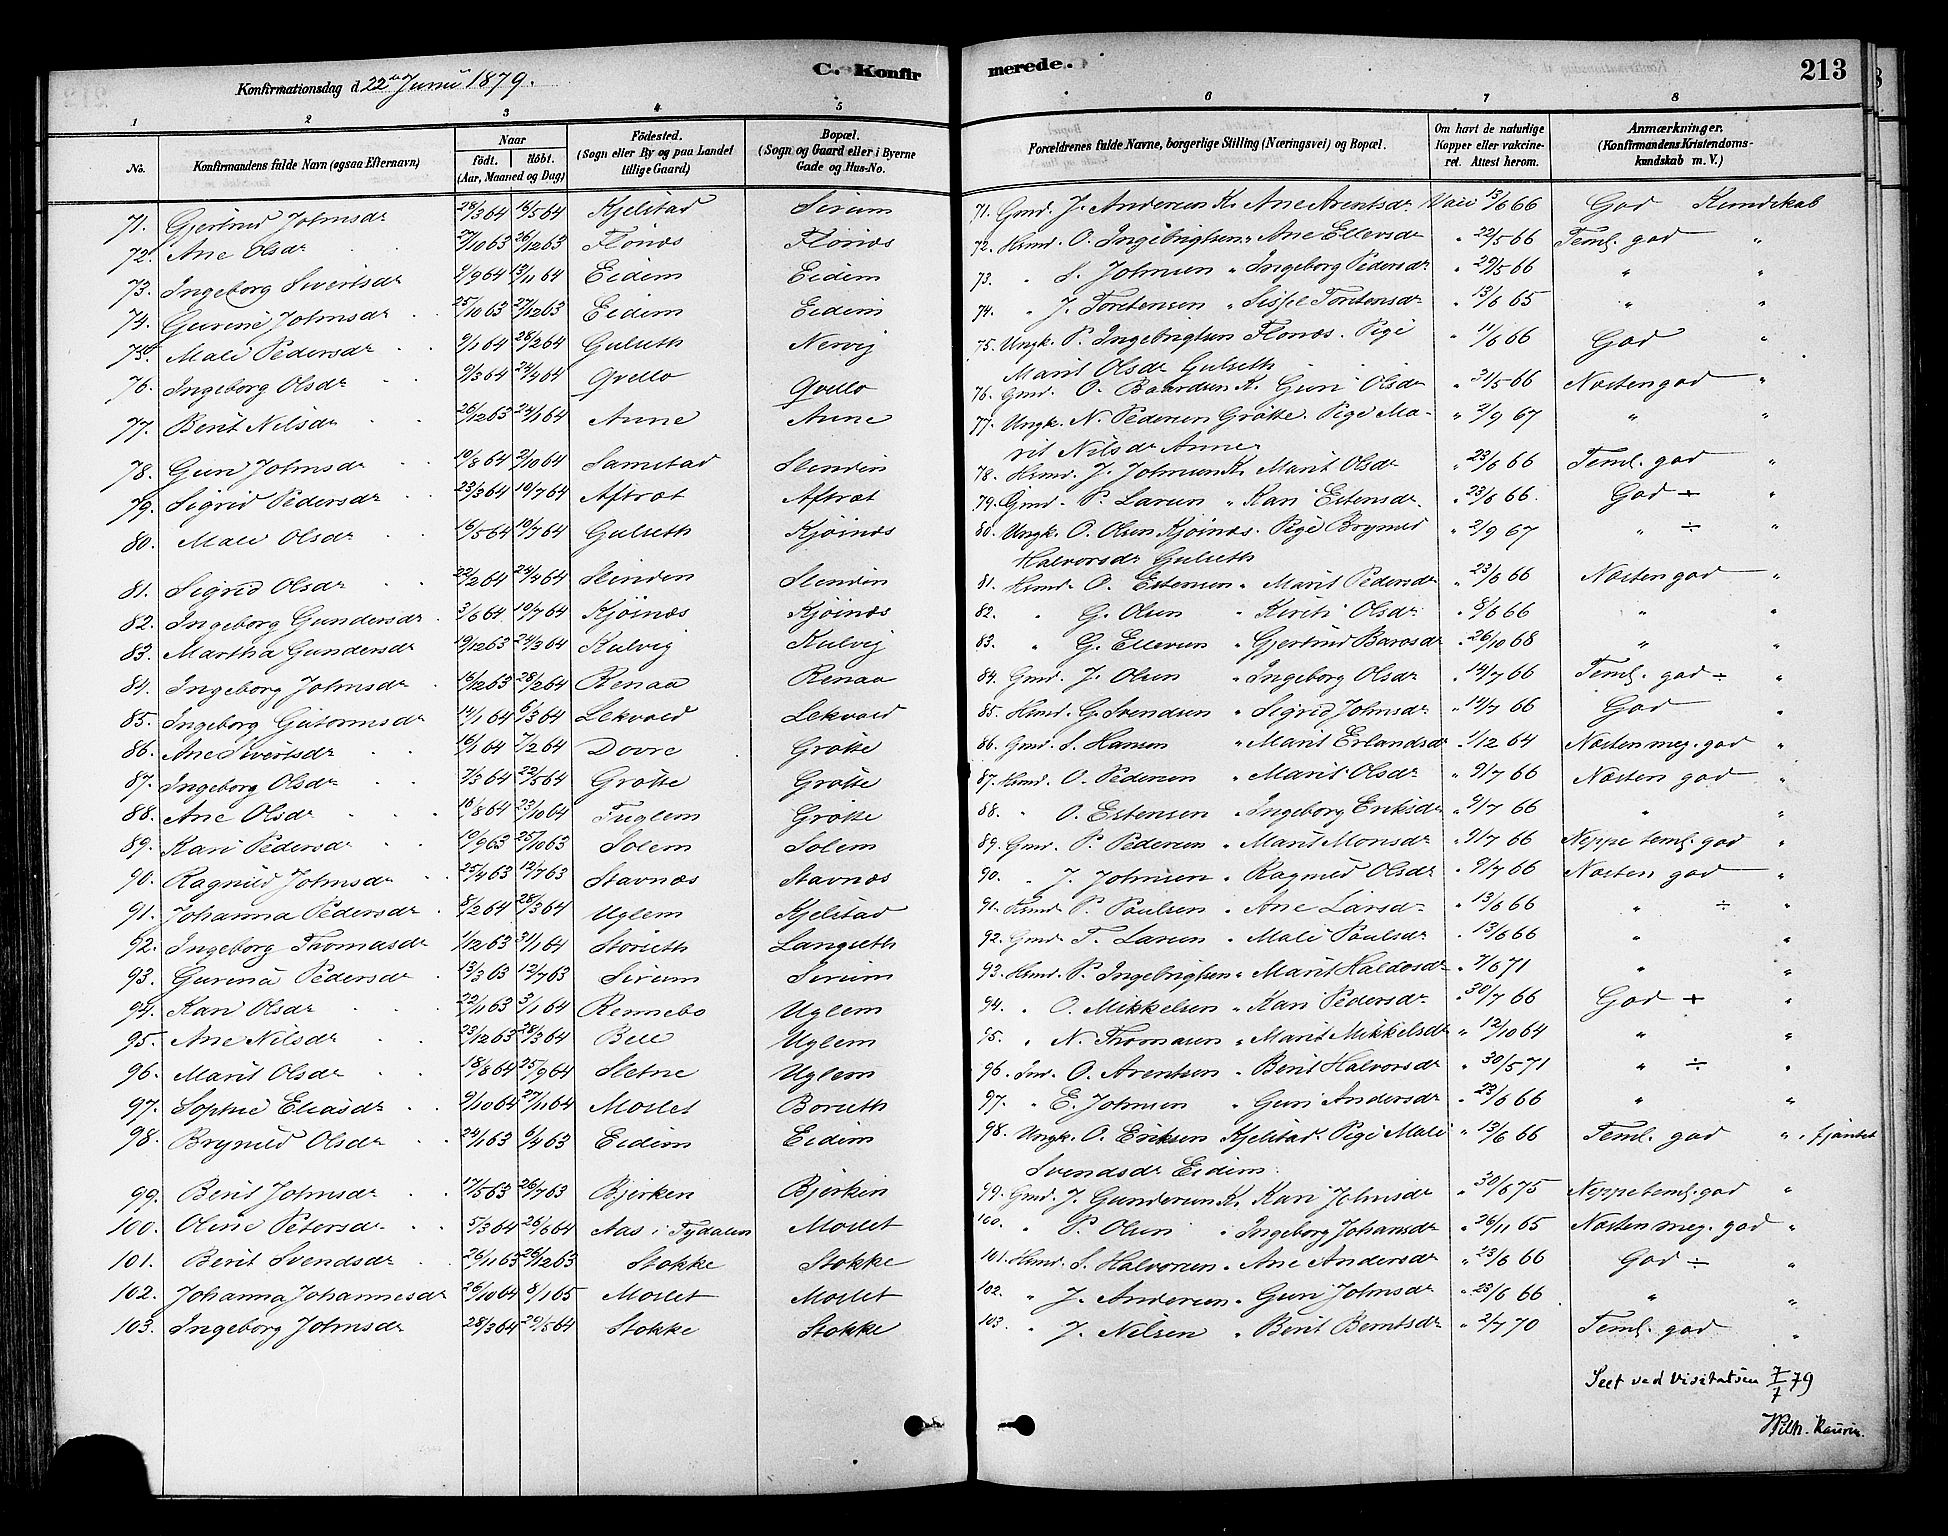 C. Konfirmerede. 213
Konfirmationsdag d. 22de Junii 1879.
1 2 3 4 5 6 7 8
No. Konfirmandens fulde Navn (ogsaa Efternavn) Naar født. døbt. (Aar, Maaned og Dag) Fødested. (Sogn eller By og paa Landet tillige Gaard) Bopæl. (Sogn og Gaard eller i Byerne Gade og Hus-No. Forældrenes fulde Navne, borgerlige Stilling (Næringsvei) og Bopæl. Om havt de naturlige Kopper eller vaccineret. Attest herom. Anmærkninger. (Konfirmandens Kristendomskundskab m. V.)
71. Gjertrud Johnsdr 28/3 64 16/5 64 Kjelstad Sirum 71. Gmd. J. Andersen K. Ane Arentsdr Vacc 13/6 66 God Kundskab
72. Ane Olsdr 27/10 63 26/12 63 Flønæs Flønæs 72. Husmd. O. Ingebrigtsen " Ane Ellevsdr " 22/5 66 Teml. god "
73. Ingeborg Sivertsdr 2/9 64 13/11 64 Eidem Eidem 73. " S. Johnsen " Ingeborg Pedersdr " 29/5 66 " "
74. Gurine Johnsdr 25/10 63 27/12 63 Eidem Eidem 74. " J. Torstensen " Sissel Torstensdr " 13/6 65 " "
75. Mali Pedersdr 9/1 64 28/2 64 Gulseth Nervig 75. Ungk. P. Ingebrigtsen Flønæs. Pige " 11/6 66 God "
Marit Olsdr Gulseth
76. Ingeborg Olsdr 9/3 64 24/4 64 Qvello Qvello 76. Gmd. O. Baardsen K. Guri Olsdr " 31/5 66 Næsten god "
77. Berit Nilsdr 26/12 63 24/1 64 Aune Aune 77. Ungk. N. Pedersen Grøtte. Pige Ma- " 2/9 67 " "
rit Nilsdr Aune
78. Guri Johnsdr 10/8 64 2/10 64 Samstad Slinden 78. Husmd. J. Johnsen K. Marit Olsdr " 23/6 66 Teml. god "
79. Sigrid Pedersdr 23/3 64 10/7 64 Aftræt Aftræt 79. Gmd. P. Larsen " Kari Estensdr " 23/6 66. God ÷ "
80. Mali Olsdr 16/5 64 10/7 64 Gulseth Kjøinæs 80. Ungk. O. Olsen Kjøinæs. Pige Brynild " 2/9 67 " ÷ "
Halvorsdr Gulseth
81. Sigrid Olsdr 22/2 64 24/4 64 Slinden Slinden 81. Husmd. O. Estensen " Marit Pedersdr " 23/6 66 Næsten god "
82. Ingeborg Gundersdr 3/6 64 10/7 64 Kjøinæs Kjøinæs 82. " G. Olsen " Kirsti Olsdr " 8/6 66 " "
83. Martha Gundersdr 19/12 63 24/3 64 Kulvig Kulvig 83. " G. Ellevsen " Gjertrud Barosdr " 26/10 68 " "
84. Ingeborg Johnsdr 16/12 63 28/2 64 Renaa Renaa 84. Gmd. J. Olsen " Ingeborg Olsdr " 14/7 66 Teml. god ÷ "
85. Ingeborg Gutormsdr 14/1 64 6/3 64 Lekvold Lekvold 85. Husmd. G. Svendsen " Sigrid Johnsdr " 14/7 66 God "
86. Ane Sivertsdr 16/1 64 7/2 64 Dovre Grøtte 86. Gmd. S. Hansen " Marit Erlandsdr " 1/12 64 Næsten meg. god "
87. Ingeborg Olsdr 7/3 64 22/5 64 Grøtte Grøtte 87. Husmd. O. Pedersen " Marit Olsdr " 9/7 66 Næsten god "
88. Ane Olsdr 18/8 64 23/10 64 Fuglem Grøtte 88. " O. Estensen " Ingeborg Eriksdr " 9/7 66 " "
89. Kari Pedersdr 19/9 63 25/10 63 Solem Solem 89. Gmd. P. Pedersen " Marit Monsdr " 9/7 66 Neppe teml. god "
90. Ragnild Johnsdr 25/4 63 12/7 63 Stavnæs Stavnæs 90. " J. Johnsen " Ragnild Olsdr " 9/7 66 Næsten god "
91. Johanna Pedersdr 8/2 64 28/3 64 Uglem Kjelstad 91. Husmd. P. Paulsen " Ane Larsdr " 13/6 66 " ÷ "
92. Ingeborg Thomasdr 1/12 63 31/1 64 Storseth Langseth 92. Gmd. T. Larsen " Mali Paulsdr " 13/6 66 " "
93. Gurina Pedersdr 13/3 63 12/7 63 Sirum Sirum 93. Husmd. P. Ingebrigtsen " Marit Haldosdr " 7/6 71 " "
94. Kari Olsdr 22/11 63 3/1 64 Rennebo Uglem 94. " O. Mikkelsen " Kari Pedersdr " 30/7 66 God ÷ "
95. Ane Nilsdr 23/12 63 28/3 64 Bell Uglem 95. " N. Thomasen " Marit Mikkelsdr " 12/10 64 " "
96. Marit Olsdr 18/8 64 25/9 64 Sletne Uglem 96. Ind. O. Arentsen " Berit Halvorsdr " 30/5 71 " ÷ "
97. Sophie Eliasdr 9/10 64 27/11 64 Moslet Borseth 97. " E. Johnsen " Guri Andersdr " 23/6 66 " "
98. Brynild Olsdr 24/1 63 6/4 63 Eidem Eidem 98. Ungk. O. Eriksen Kjelstad. Pige Mali " 13/6 66 Teml. god " , fjantet
Svendsdr Eidem.
99. Berit Johnsdr 17/5 63 26/7 63 Bjerken Bjerken 99. Gmd. J. Gundersen K. Kari Johnsdr " 30/6 75 Neppe teml. god "
100. Oline Petersdr 5/3 64 26/6 64 Aas i Tydalen Moslet 100. " P. Olsen " Ingeborg Johansdr " 26/11 65 Næsten meg. god "
101. Berit Svendsdr 26/11 63 26/12 63 Stokke Stokke 101. Husmd. S. Halvorsen " Ane Andersdr " 23/6 66 God ÷ "
102. Johanna Johannesdr 26/10 64 8/1 65 Moslet Moslet 102. " J. Andersen " Guri Johnsdr " 23/6 66 " "
103. Ingeborg Johnsdr 28/3 64 29/5 64 Stokke Stokke 103. " J. Nilsen " Berit Berntsdr " 2/7 70 Teml. god "
Seet ved Visitatsen 7/7 79